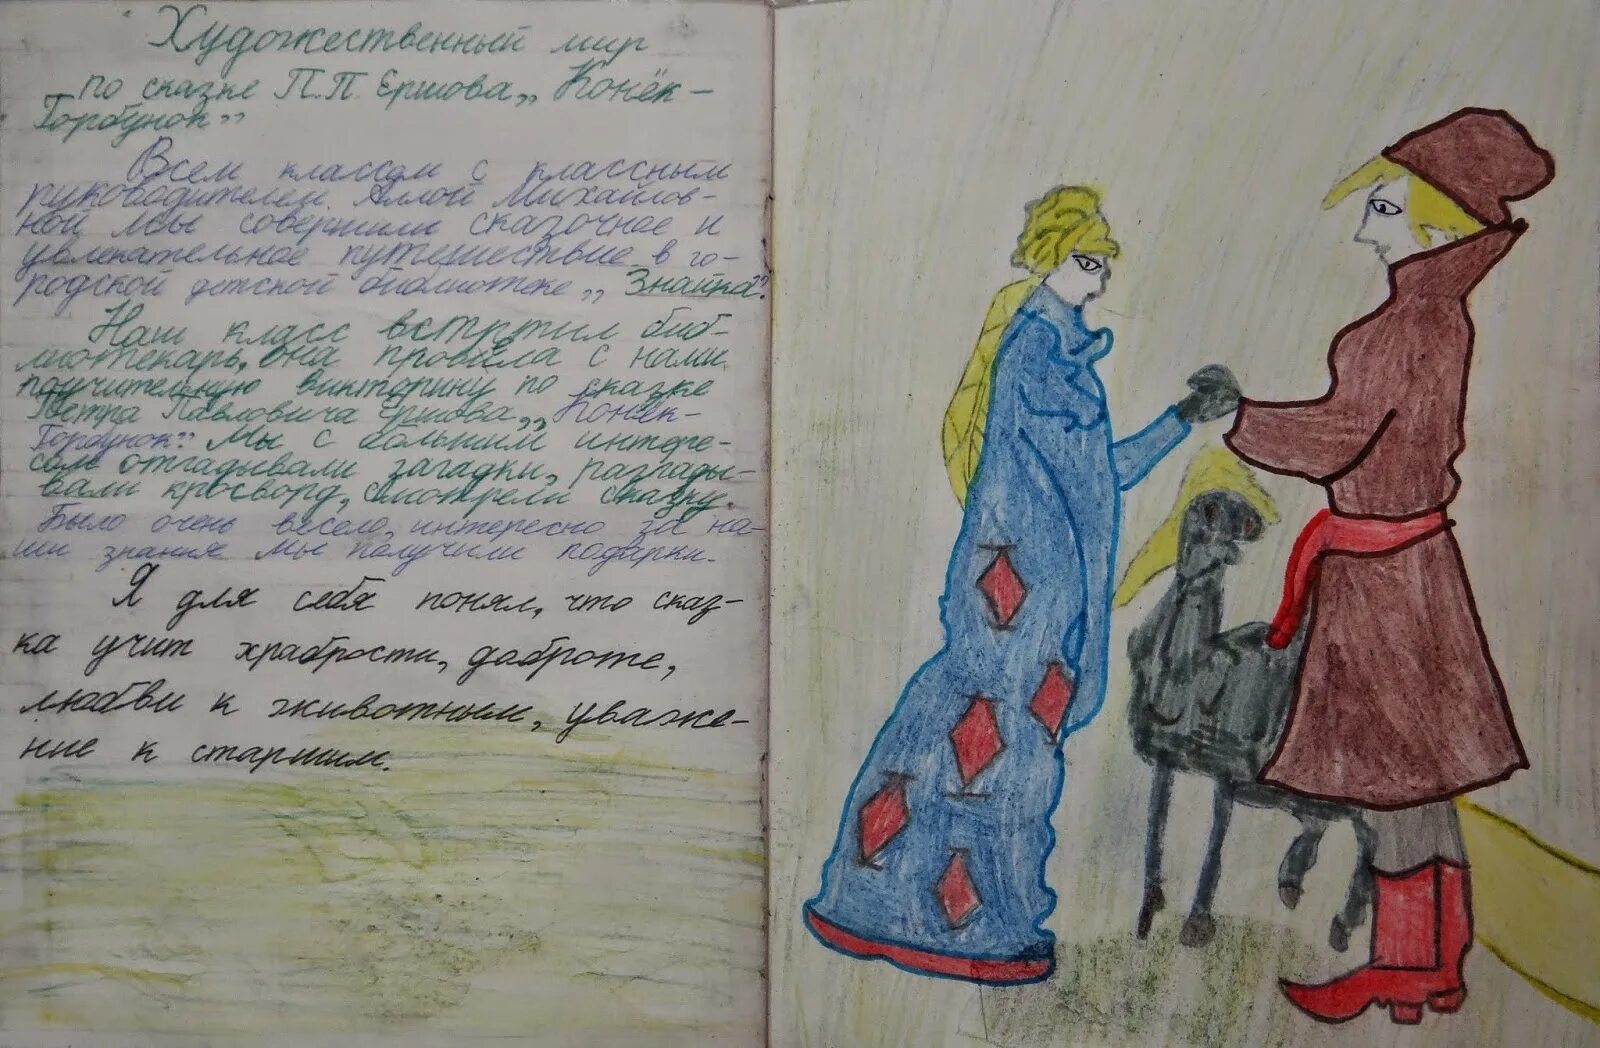 Художественный мир
по сказке П.П. Ершова „Конёк-
Горбунок"
Всем классом с классным
руководителем Аллой Михайлов-
ной мы совершили сказочное и
увлекательное путешествие в го-
родской детской библиотеке „Знайка".
Наш класс встретил биб-
лиотекарь, она провела с нами
поучительную викторину по сказке
Петра Павловича Ершова „Конёк-
Горбунок". Мы с большим интере-
сом отгадывали загадки, разгады-
вали кросворд, смотрели сказку.
Было очень весело, интересно за на-
ши знания мы получили подарки.
Я для себя понял, что сказ-
ка учит храбрости, доброте,
любви к животным, уваже-
ние к старшим.